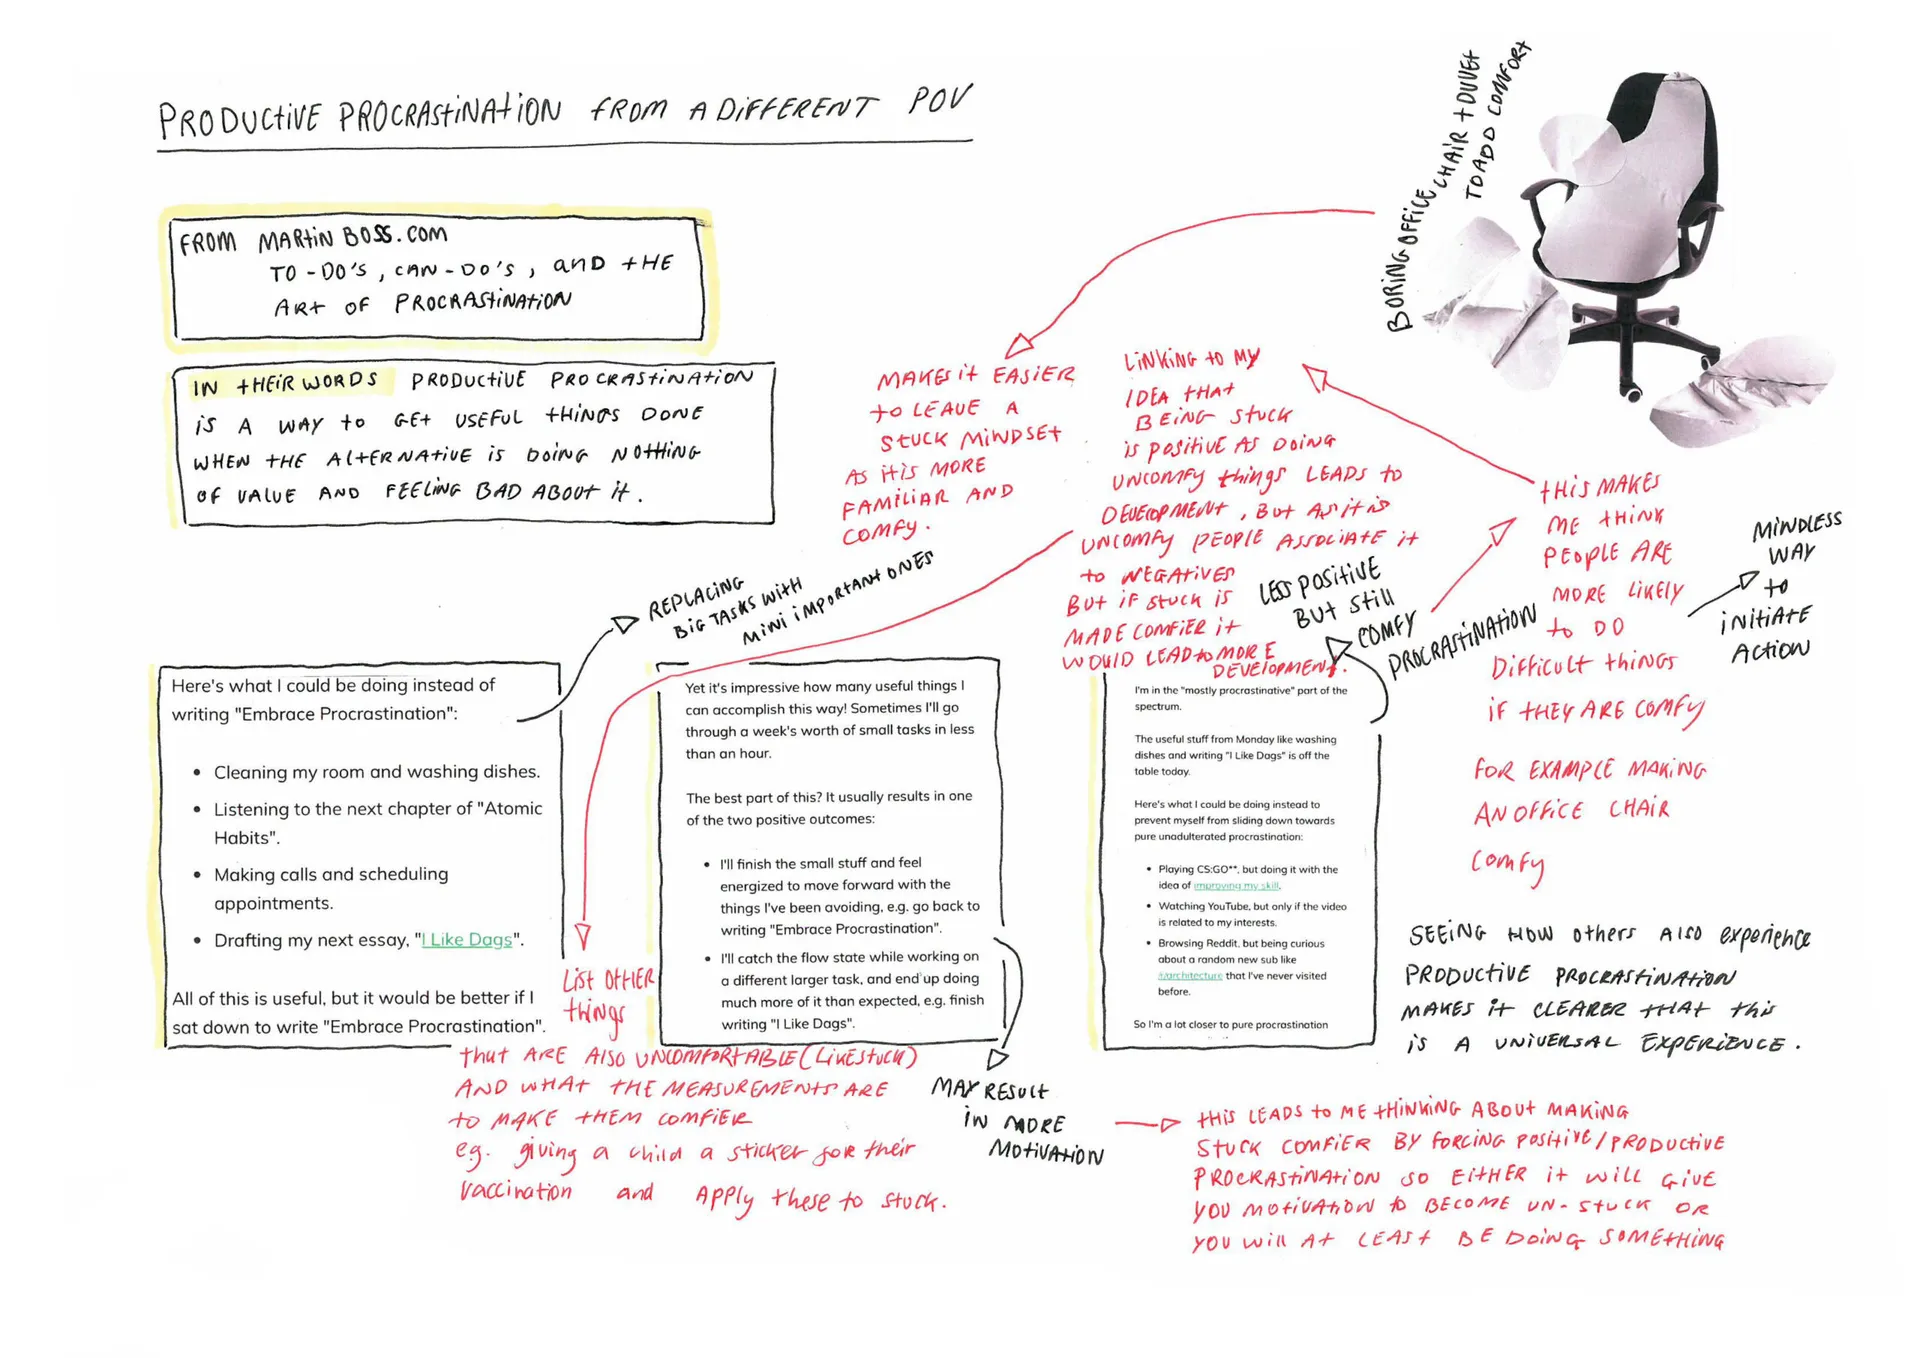 PRODUCTIVE PROCRASTINATION FROM A DIFFERENT POV
BORING OFFICE CHAIR + DUVET
TO ADD COMFORT
FROM MARTIN BOSS.COM
TO-DO'S, CAN-DO'S, AND THE
ART OF PROCRASTINATION
IN THEIR WORDS PRODUCTIVE PROCRASTINATION
IS A WAY TO GET USEFUL THINGS DONE
WHEN THE ALTERNATIVE IS DOING NOTHING
OF VALUE AND FEELING BAD ABOUT IT.
MAKES IT EASIER
TO LEAVE A
STUCK MINDSET
AS IT IS MORE
FAMILIAR AND
COMFY.
LINKING TO MY
IDEA THAT
BEING STUCK
IS POSITIVE AS DOING
UNCOMFY THINGS LEADS TO
DEVELOPMENT, BUT AS IT IS
UNCOMFY PEOPLE ASSOCIATE IT
TO NEGATIVES
BUT IF STUCK IS
MADE COMFIER IT
WOULD LEAD TO MORE
DEVELOPMENT.
THIS MAKES
ME THINK
PEOPLE ARE
MORE LIKELY
TO DO
DIFFICULT THINGS
IF THEY ARE COMFY
FOR EXAMPLE MAKING
AN OFFICE CHAIR
COMFY
MINDLESS
WAY
TO
INITIATE
ACTION
REPLACING
BIG TASKS WITH
MINI IMPORTANT ONES
LESS POSITIVE
BUT STILL
COMFY
PROCRASTINATION
Here's what I could be doing instead of
writing "Embrace Procrastination":
• Cleaning my room and washing dishes.
• Listening to the next chapter of "Atomic
Habits".
• Making calls and scheduling
appointments.
• Drafting my next essay, "I Like Dags".
All of this is useful, but it would be better if I
sat down to write "Embrace Procrastination".
Yet it's impressive how many useful things I
can accomplish this way! Sometimes I'll go
through a week's worth of small tasks in less
than an hour.
The best part of this? It usually results in one
of the two positive outcomes:
• I'll finish the small stuff and feel
energized to move forward with the
things I've been avoiding, e.g. go back to
writing "Embrace Procrastination".
• I'll catch the flow state while working on
a different larger task, and end up doing
much more of it than expected, e.g. finish
writing "I Like Dags".
I'm in the "mostly procrastinative" part of the
spectrum.
The useful stuff from Monday like washing
dishes and writing "I Like Dags" is off the
table today.
Here's what I could be doing instead to
prevent myself from sliding down towards
pure unadulterated procrastination:
• Playing CS:GO**, but doing it with the
idea of improving my skill.
• Watching YouTube, but only if the video
is related to my interests.
• Browsing Reddit, but being curious
about a random new sub like
/r/architecture that I've never visited
before.
So I'm a lot closer to pure procrastination
LIST OTHER
things
that ARE ALSO UNCOMFORTABLE (LIKE STUCK)
AND WHAT THE MEASUREMENTS ARE
TO MAKE THEM COMFIER
eg. giving a child a sticker for their
vaccination and APPly these to stuck.
MAY RESULT
IN MORE
MOTIVATION
SEEING HOW OTHERS ALSO experience
PRODUCTIVE PROCRASTINATION
MAKES IT CLEARER THAT this
IS A UNIVERSAL EXPERIENCE.
THIS LEADS TO ME THINKING ABOUT MAKING
STUCK COMFIER BY FORCING POSITIVE/PRODUCTIVE
PROCRASTINATION SO EITHER IT WILL GIVE
YOU MOTIVATION TO BECOME UN-STUCK OR
YOU WILL AT LEAST BE DOING SOMETHING